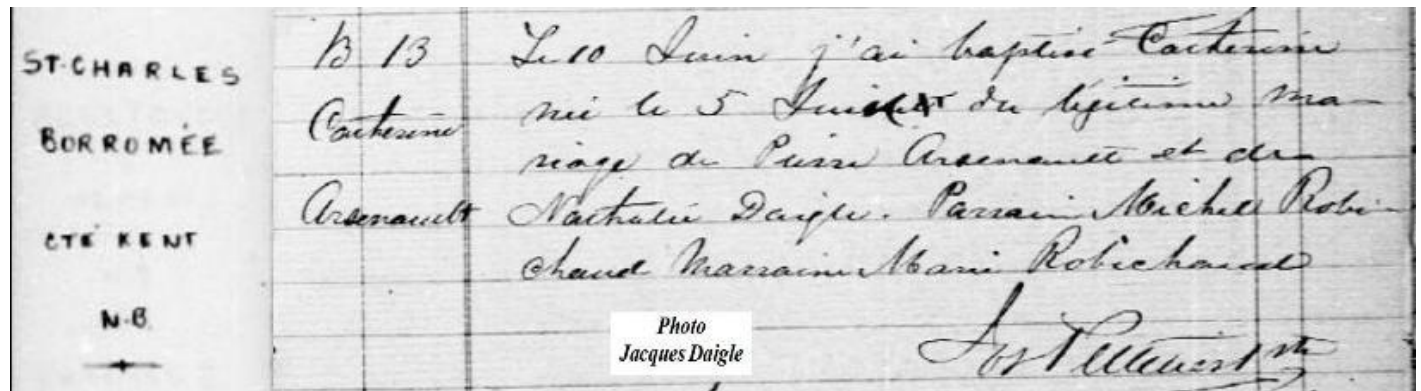 ST-CHARLES
BORROMÉE
CTÉ KENT
N.B.
B 13
Catherine
Arsenault
Le 10 Juin j'ai baptisé Catherine
née le 5 du légitime ma-
riage de Pierre Arsenault et de
Nathalie Daigle. Parrain Michel Robi-
chaud Marraine Marie Robichaud
Photo
Jacques Daigle